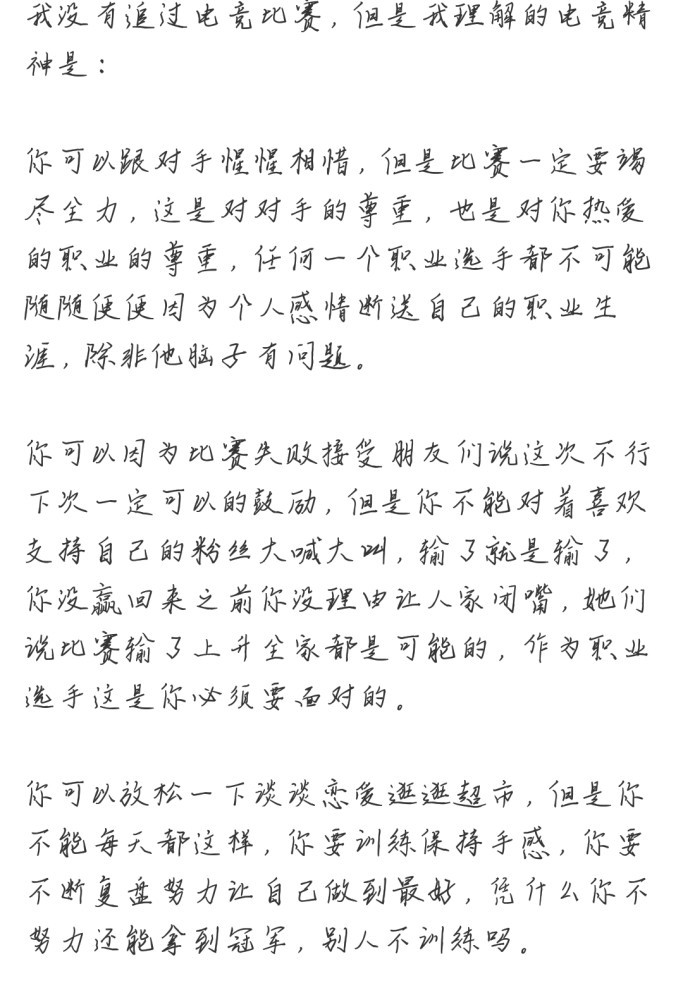 我没有追过电竞比赛，但是我理解的电竞精
神是：
你可以跟对手惺惺相惜，但是比赛一定要竭
尽全力，这是对对手的尊重，也是对你热爱
的职业的尊重，任何一个职业选手都不可能
随随便便因为个人感情断送自己的职业生
涯，除非他脑子有问题。
你可以因为比赛失败接受朋友们说这次不行
下次一定可以的鼓励，但是你不能对着喜欢
支持自己的粉丝大喊大叫，输了就是输了，
你没赢回来之前你没理由让人家闭嘴，她们
说比赛输了上升全家都是可能的，作为职业
选手这是你必须要面对的。
你可以放松一下谈谈恋爱逛逛超市，但是你
不能每天都这样，你要训练保持手感，你要
不断复盘努力让自己做到最好，凭什么你不
努力还能拿到冠军，别人不训练吗。